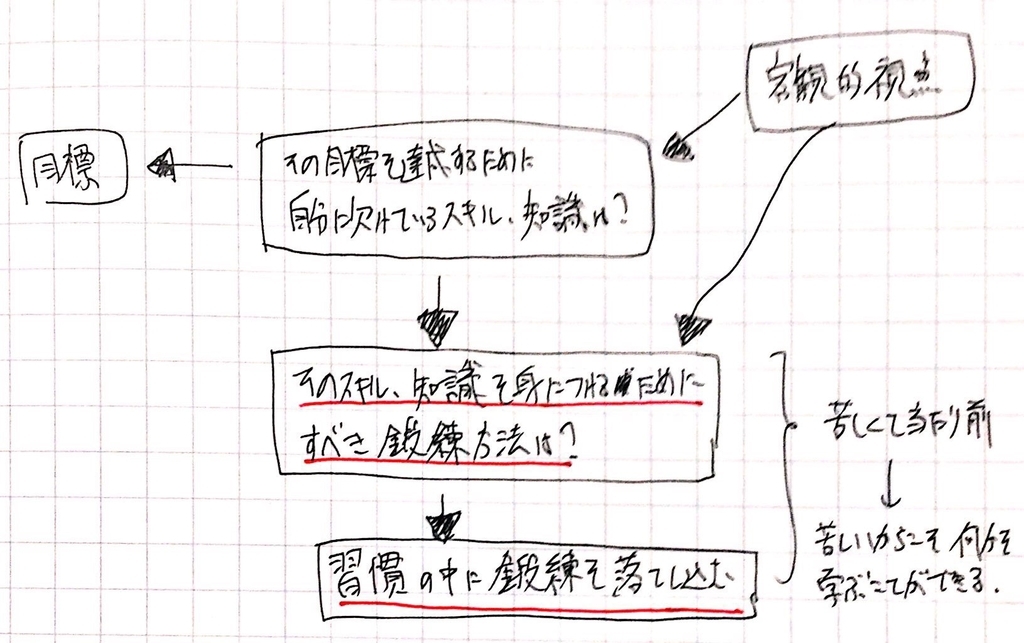 客観的視点
目標
その目標を達成するために
自分に欠けているスキル、知識は?
そのスキル、知識を身につけるために
すべき鍛練方法は?
苦しくて当たり前
苦しいからこそ何かを
学ぶことができる.
習慣の中に鍛練を落とし込む